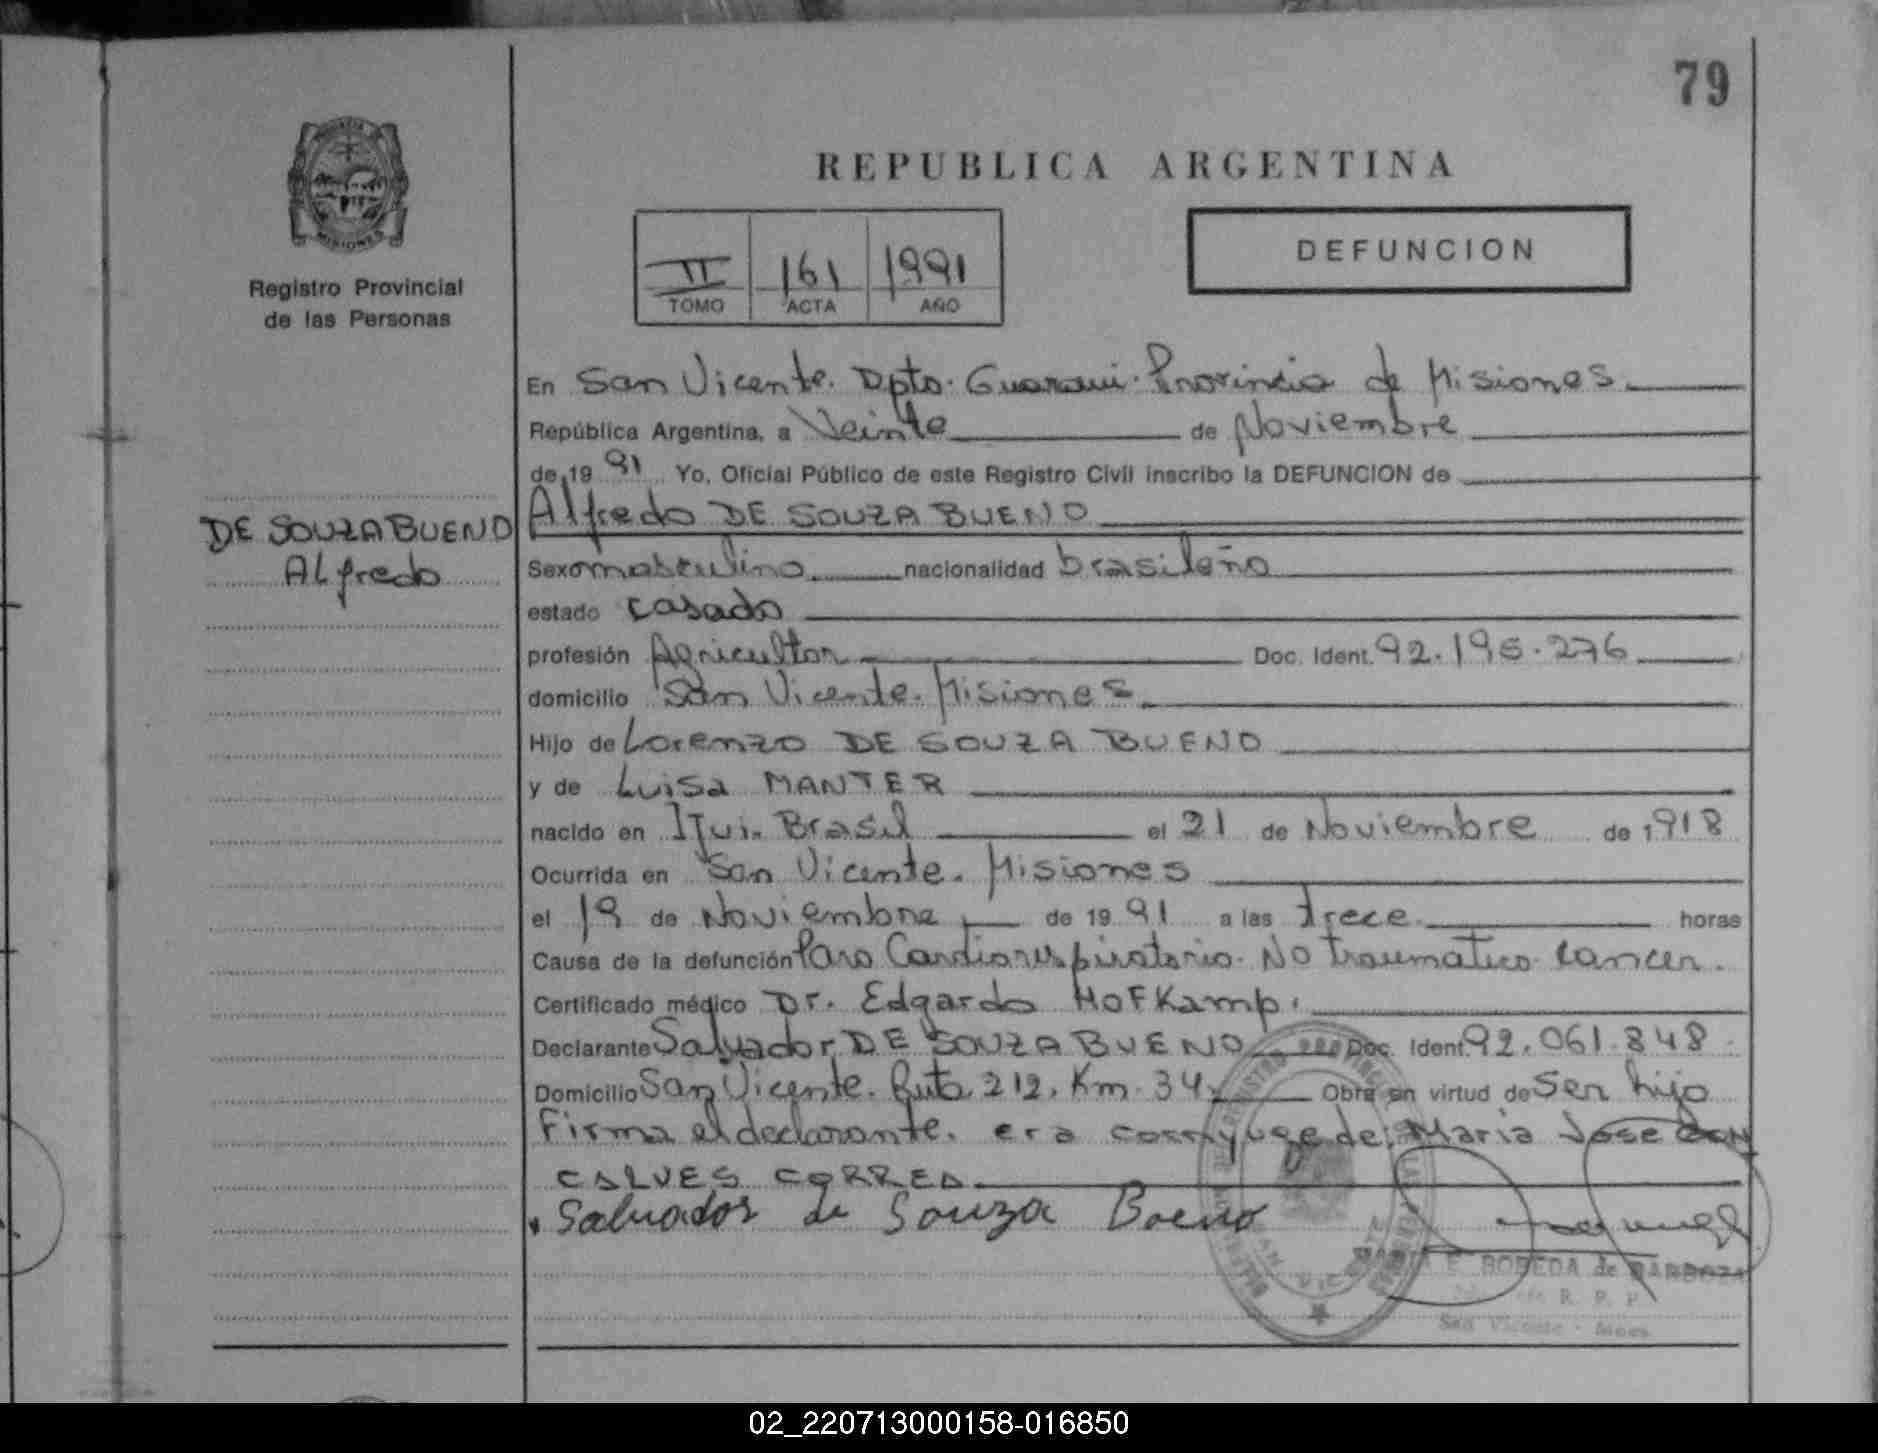 79
REPUBLICA ARGENTINA
DEFUNCION
II 161 1991
TOMO ACTA AÑO
MISIONES
Registro Provincial
de las Personas
DE SOUZA BUENO
Alfredo
En San Vicente. Dpto. Guarani. Provincia de Misiones.
República Argentina, a Veinte de Noviembre
de 19 91 Yo, Oficial Público de este Registro Civil inscribo la DEFUNCION de
Alfredo DE SOUZA BUENO
Sexo masculino nacionalidad brasileño
estado casado
profesión Agricultor Doc. Ident. 92.195.276
domicilio San Vicente. Misiones
Hijo de Lorenzo DE SOUZA BUENO
y de Luisa MANTER
nacido en Ijui. Brasil el 21 de Noviembre de 1918
Ocurrida en San Vicente. Misiones
el 19 de Noviembre de 19 91 a las trece horas
Causa de la defunción Paro Cardiorespiratorio. No traumatico. Cancer.
Certificado médico Dr. Edgardo HOFKamp.
Declarante Salvador DE SOUZA BUENO Doc. Ident. 92.061.848
Domicilio San Vicente. Ruta 212. Km. 34. Obra en virtud de Ser hijo
Firma el declarante. era conyuge de: Maria Jose GON
CALVES CORREA
Salvador de Souza Boeno
BOBEDA de BARBOZA
R. P. P.
San Vicente - Mnes.
02_220713000158-016850